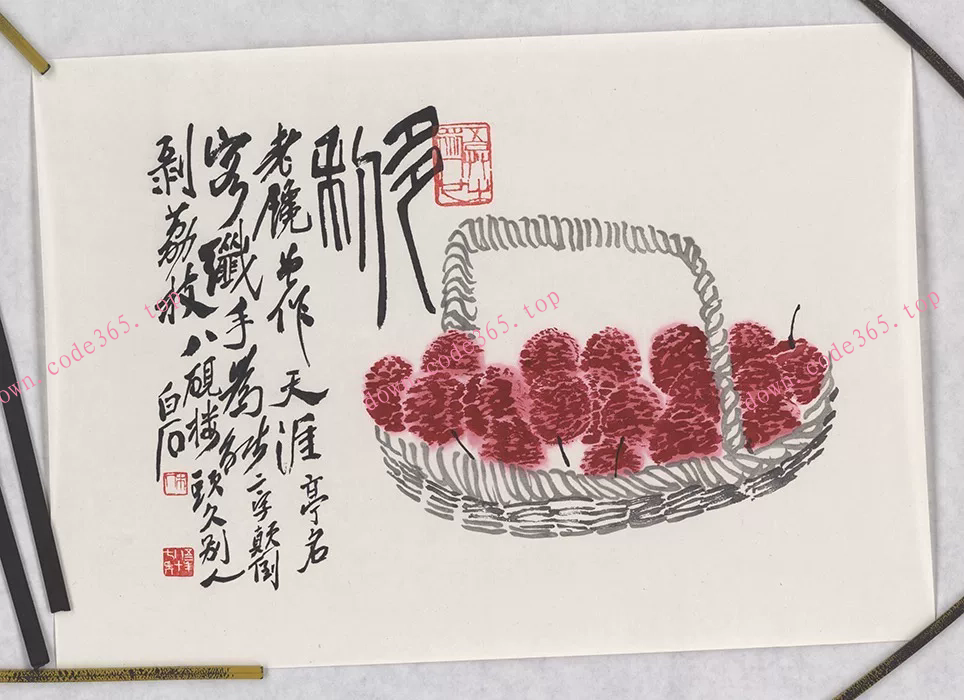 多利
老饞 作天涯亭名
客纖手為 二字顛倒
剝荔枝八硯樓頭久別人
白石
down.code365.top
down.code365.top
down.code365.top